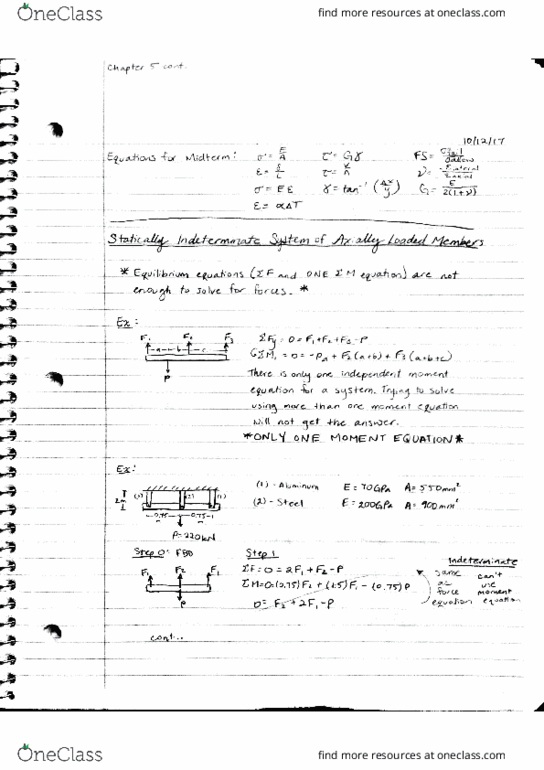 OneClass
find more resources at oneclass.com
Chapter 5 cont.
10/12/17
Equations for Midterm:
σ = F/A
ε = δ/L
σ = Eε
ε = αΔT
τ = Gγ
γ = tan⁻¹ (Δx/y)
FS =
G = E/2(1+ν)
Statically Indeterminate System of Axially Loaded Members
* Equilibrium equations (ΣF and ONE ΣM equation) are not
enough to solve for forces. *
Ex:
F₁ F₂ F₃
a b c
P
ΣFy = 0 = F₁ + F₂ + F₃ - P
ΣM₁ = 0 = -Pa + F₂(a+b) + F₃(a+b+c)
There is only one independent moment
equation for a system. Trying to solve
using more than one moment equation
will not get the answer.
*ONLY ONE MOMENT EQUATION*
Ex:
(1) (2) (1)
2m
0.75 m 0.75 m
P=220kN
(1) - Aluminum E = 70GPa A = 550mm²
(2) - Steel E = 200GPa A = 900mm²
Step 0: FBD
F₁ F₂ F₁
P
Step 1
ΣF = 0 = 2F₁ + F₂ - P
ΣM=0=(0.75)F₂ + (1.5)F₁ - (0.75)P
0 = F₂ + 2F₁ - P
Indeterminate
same
as
force
equation
can't
use
moment
equation
cont...
OneClass
find more resources at oneclass.com